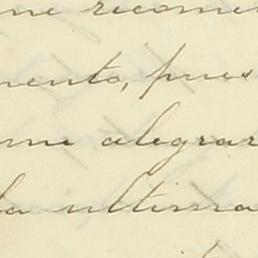 me recome
mento, pues
me alegrar
la ultima